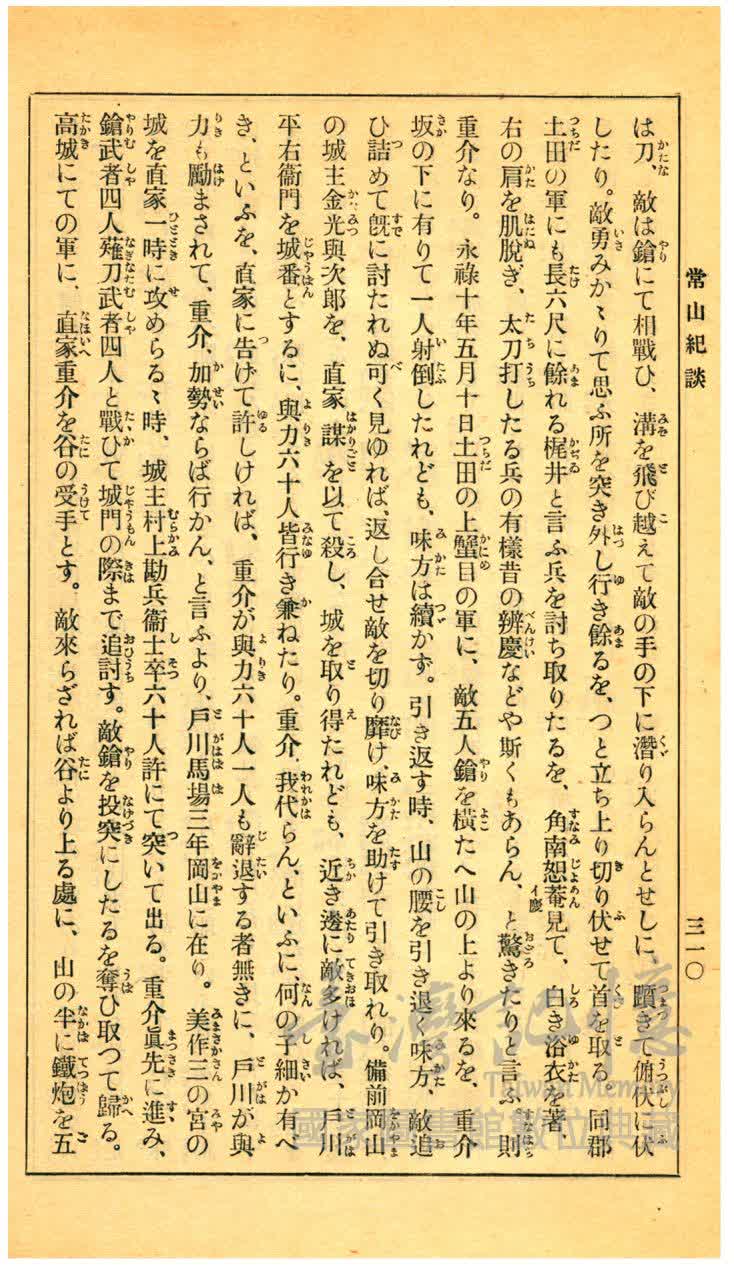 常山紀談
三一〇
は刀、敵は鎗にて相戰ひ、溝を飛び越えて敵の手の下に潛り入らんとせしに、躓きて俯伏に伏
したり。敵勇みかゝりて思ふ所を突き外し行き餘るを、つと立ち上り切り伏せて首を取る。同郡
土田の軍にも長六尺に餘れる梶井と言ふ兵を討ち取りたるを、角南恕菴見て、白き浴衣を著、
イ慶
右の肩を肌脫ぎ、太刀打したる兵の有樣昔の辨慶などや斯くもあらん、と驚きたりと言ふ。則
重介なり。永祿十年五月十日土田の上蟹目の軍に、敵五人鎗を橫たへ山の上より來るを、重介
坂の下に有りて一人射倒したれども、味方は續かず。引き返す時、山の腰を引き退く味方、敵追
ひ詰めて旣に討たれぬ可く見ゆれば、返し合せ敵を切り靡け、味方を助けて引き取れり。備前岡山
の城主金光與次郎を、直家謀を以て殺し、城を取り得たれども、近き邊に敵多ければ、戶川
平右衞門を城番とするに、與力六十人皆行き兼ねたり。重介、我代らん、といふに、何の子細か有べ
き、といふを、直家に告げて許しければ、重介が與力六十人一人も辭退する者無きに、戶川が與
力も勵まされて、重介、加勢ならば行かん、と言ふより、戶川馬場三年岡山に在り。美作三の宮の
城を直家一時に攻めらるゝ時、城主村上勘兵衞士卒六十人許にて突いて出る。重介眞先に進み、
鎗武者四人薙刀武者四人と戰ひて城門の際まで追討す。敵鎗を投突にしたるを奪ひ取つて歸る。
高城にての軍に、直家重介を谷の受手とす。敵來らざれば谷より上る處に、山の半に鐵炮を五
臺灣記憶
Taiwan Memory
國家圖書館數位典藏